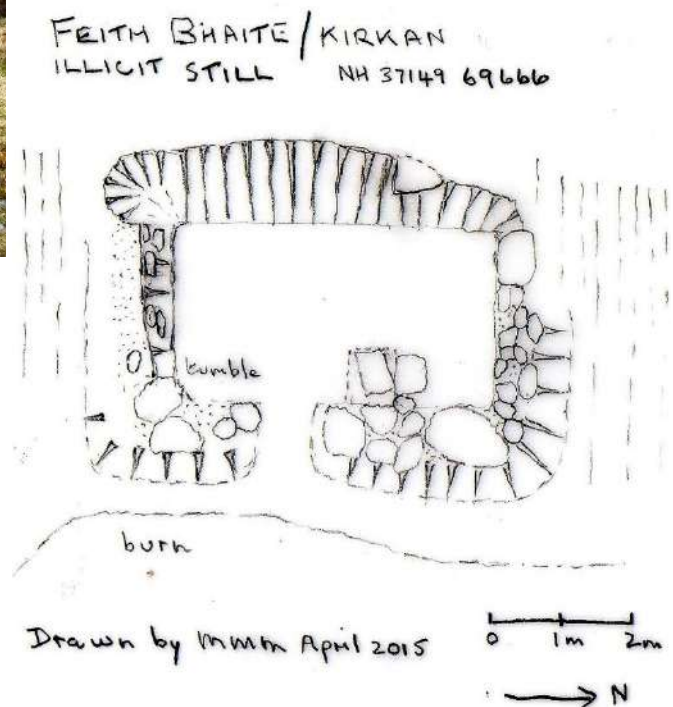 FEITH BHAITE/KIRKAN
ILLICIT STILL NH 37149 69666
tumble
burn
Drawn by mmm April 2015
0 1m 2m
N